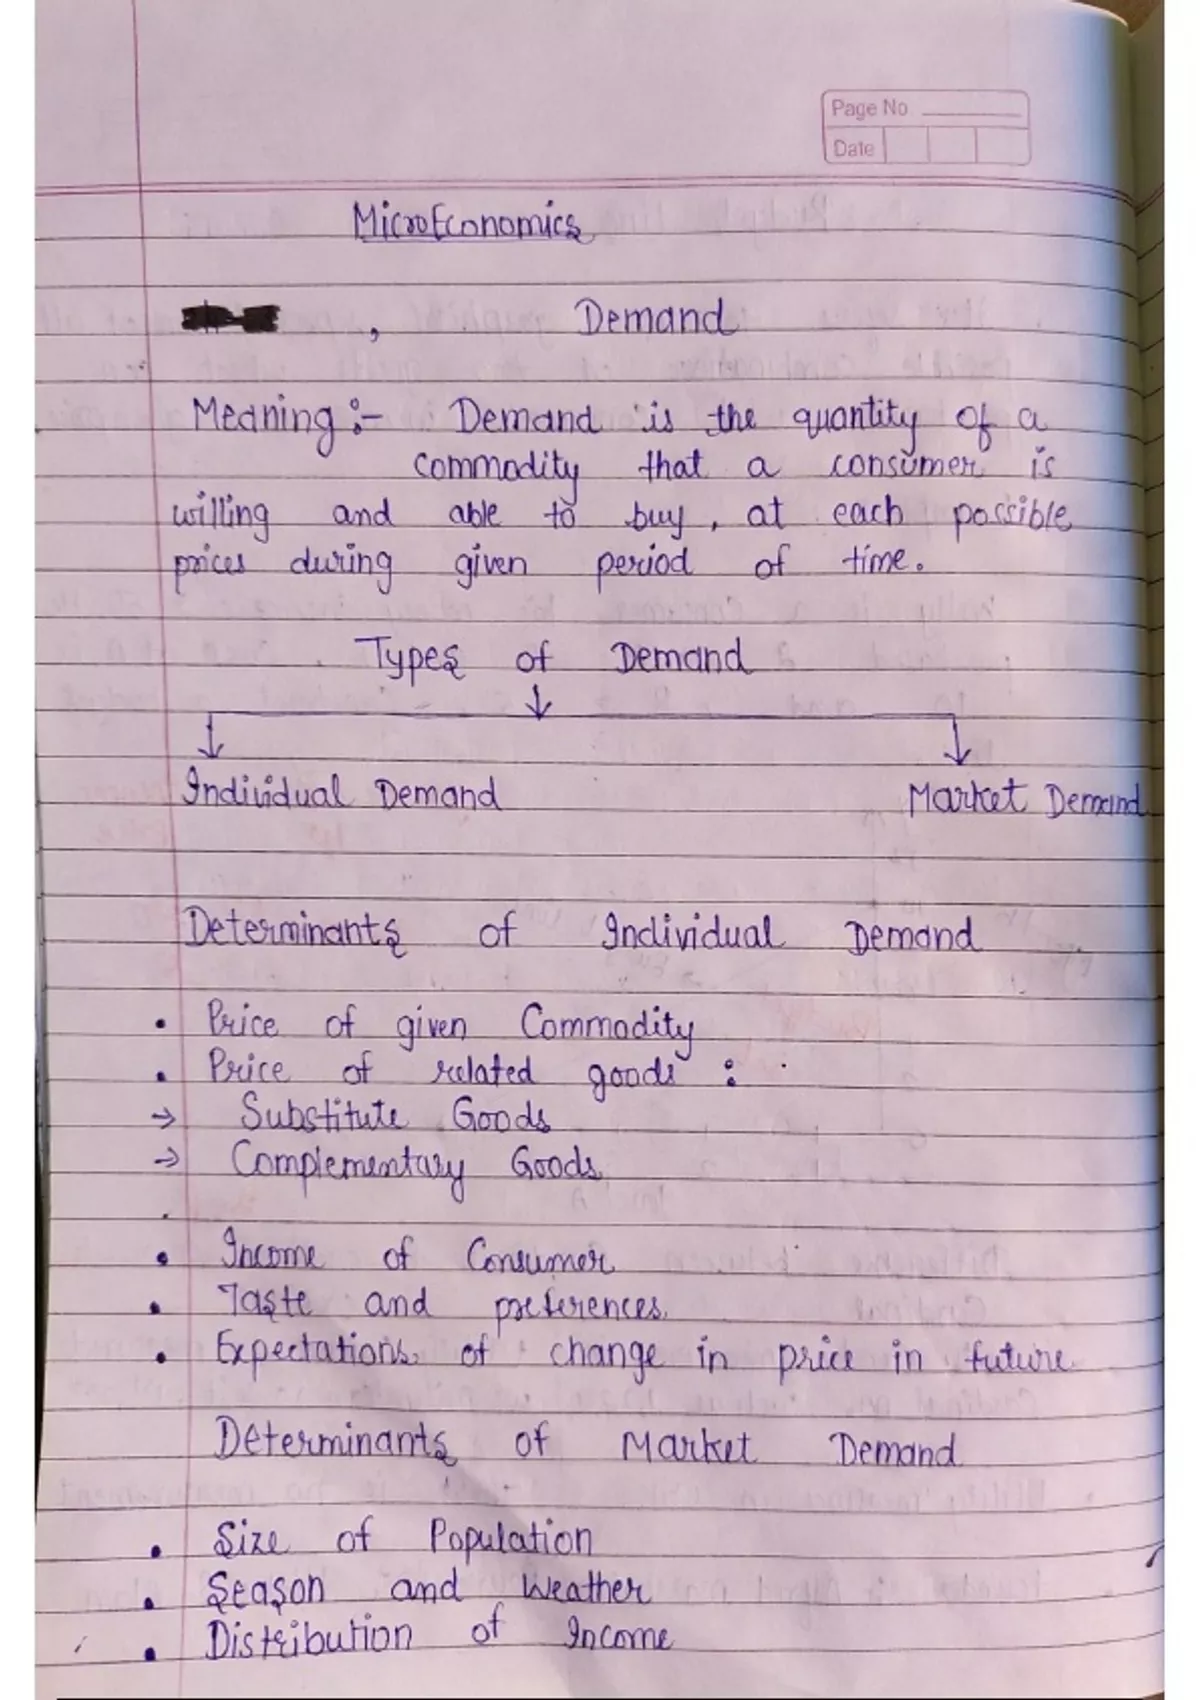 Page No
Date
MicroEconomics
, Demand
Meaning :- Demand is the quantity of a
commodity that a consumer is
willing and able to buy, at each possible
prices during given period of time.
Types of Demand
↓
↓ ↓
Individual Demand Market Demand
Determinants of Individual Demand
• Price of given Commodity
• Price of related goods :
→ Substitute Goods
→ Complementary Goods
• Income of Consumer
• Taste and preferences.
• Expectations of change in price in future
Determinants of Market Demand
• Size of Population
• Season and Weather
• Distribution of Income